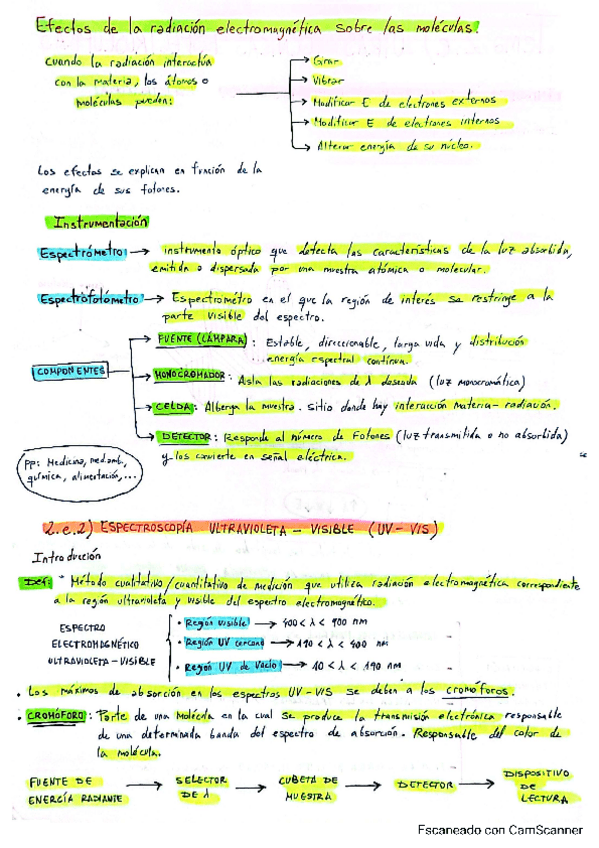 Efectos de la radiación electromagnética sobre las moléculas.
Cuando la radiación interactúa
con la materia, los átomos o
moléculas pueden:
→ Girar
→ Vibrar
→ Modificar E de electrones externos
→ Modificar E de electrones internos
→ Alterar energía de su núcleo.
Los efectos se explican en función de la
energía de sus fotones.
Instrumentación
Espectrómetro → instrumento óptico que detecta las características de la luz absorbida,
emitida o dispersada por una muestra atómica o molecular.
Espectrofotómetro → Espectrómetro en el que la región de interés se restringe a la
parte visible del espectro.
COMPONENTES
→ FUENTE (LÁMPARA): Estable, direccionable, larga vida y distribución
energía espectral continua.
→ MONOCROMADOR: Aisla las radiaciones de λ deseada (luz monocromática)
→ CELDA: Alberga la muestra. sitio donde hay interacción materia-radiación.
→ DETECTOR: Responde al número de Fotones (luz transmitida o no absorbida)
y los convierte en señal eléctrica.
PP: Medicina, med.amb.,
química, alimentación,...
2.e.2) ESPECTROSCOPÍA ULTRAVIOLETA - VISIBLE (UV-VIS)
Introducción
Def: Método cualitativo/cuantitativo de medición que utiliza radiación electromagnética correspondiente
a la región ultravioleta y visible del espectro electromagnético.
ESPECTRO
ELECTROMAGNÉTICO
ULTRAVIOLETA-VISIBLE
• Región visible → 400 < λ < 900 nm
• Región UV cercano → 190 < λ < 400 nm
• Región UV de Vacío → 10 < λ < 190 nm
• Los máximos de absorción en los espectros UV-VIS se deben a los cromóforos.
• CROMÓFORO: Parte de una Molécula en la cual se produce la transmisión electrónica responsable
de una determinada banda del espectro de absorción. Responsable del color de
la molécula.
FUENTE DE
ENERGÍA RADIANTE
→ SELECTOR
DE λ
→ CUBETA DE
MUESTRA
→ DETECTOR
→ DISPOSITIVO
DE
LECTURA
Escaneado con CamScanner